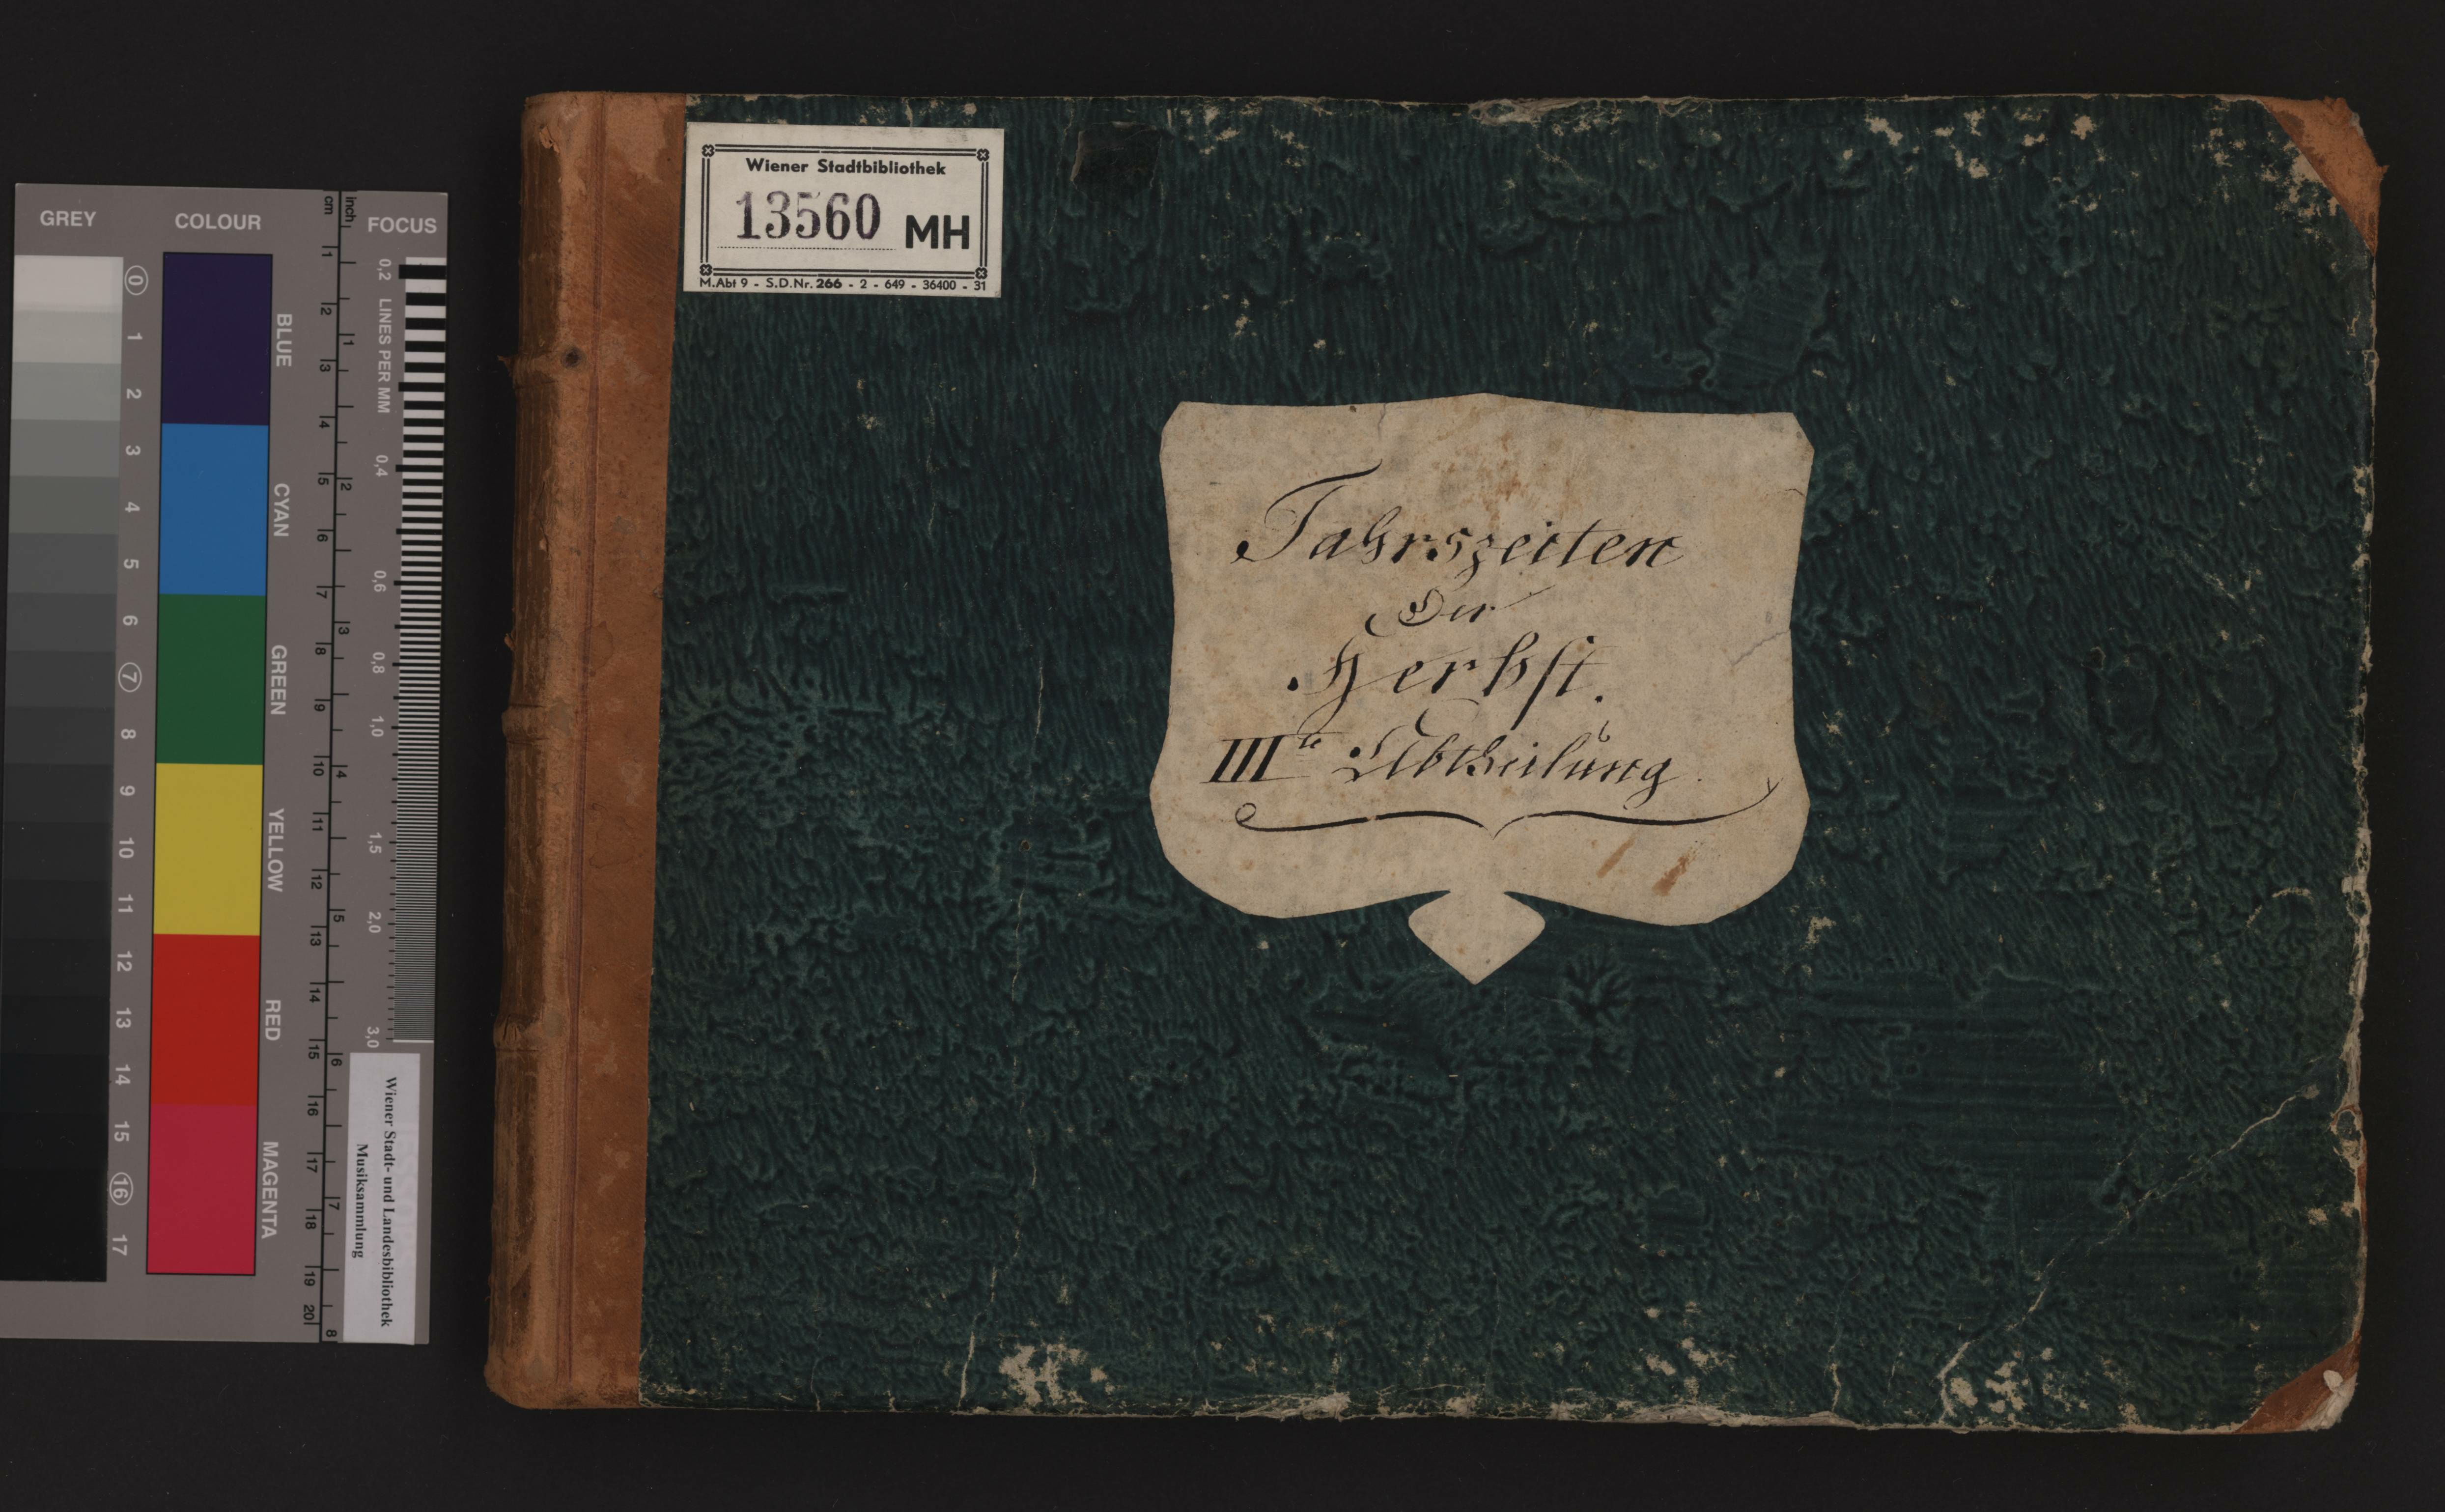 GREY
COLOUR
FOCUS
cm
inch
0
1
2
3
4
5
6
7
8
9
10
11
12
13
14
15
16
17
BLUE
CYAN
GREEN
YELLOW
RED
MAGENTA
1
2
3
4
5
6
7
8
9
10
11
12
13
14
15
16
17
18
19
20
1
2
3
4
5
6
7
8
0,2 LINES PER MM
0,4
0,6
0,8
1,0
1,5
2,0
3,0
Wiener Stadt- und Landesbibliothek
Musiksammlung
Wiener Stadtbibliothek
13560 MH
M.Abt 9 - S.D.Nr. 266 - 2 - 649 - 36400 - 31
Jahrszeiten
Der
Herbst.
IIIte Abtheilung.